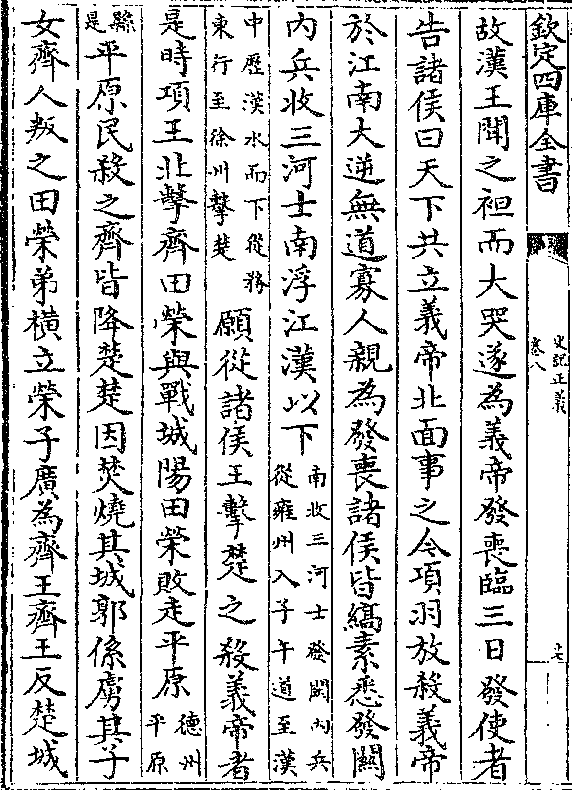 欽定四庫全書
史記正義
卷八
十七
故漢王聞之袒而大哭遂為義帝發喪臨三日發使者
告諸侯曰天下共立義帝北面事之今項羽放殺義帝
於江南大逆無道寡人親為發喪諸侯皆縞素悉發關
內兵收三河士南浮江漢以下
南收三河士發關內兵
從雍州入子午道至漢
中歷漢水而下從將
東行至徐州擊楚
願從諸侯王擊楚之殺義帝者
是時項王北擊齊田榮與戰城陽田榮敗走平原
德州
平原
縣
是
平原民殺之齊皆降楚楚因焚燒其城郭係虜其子
女齊人叛之田榮弟橫立榮子廣為齊王齊王反楚城